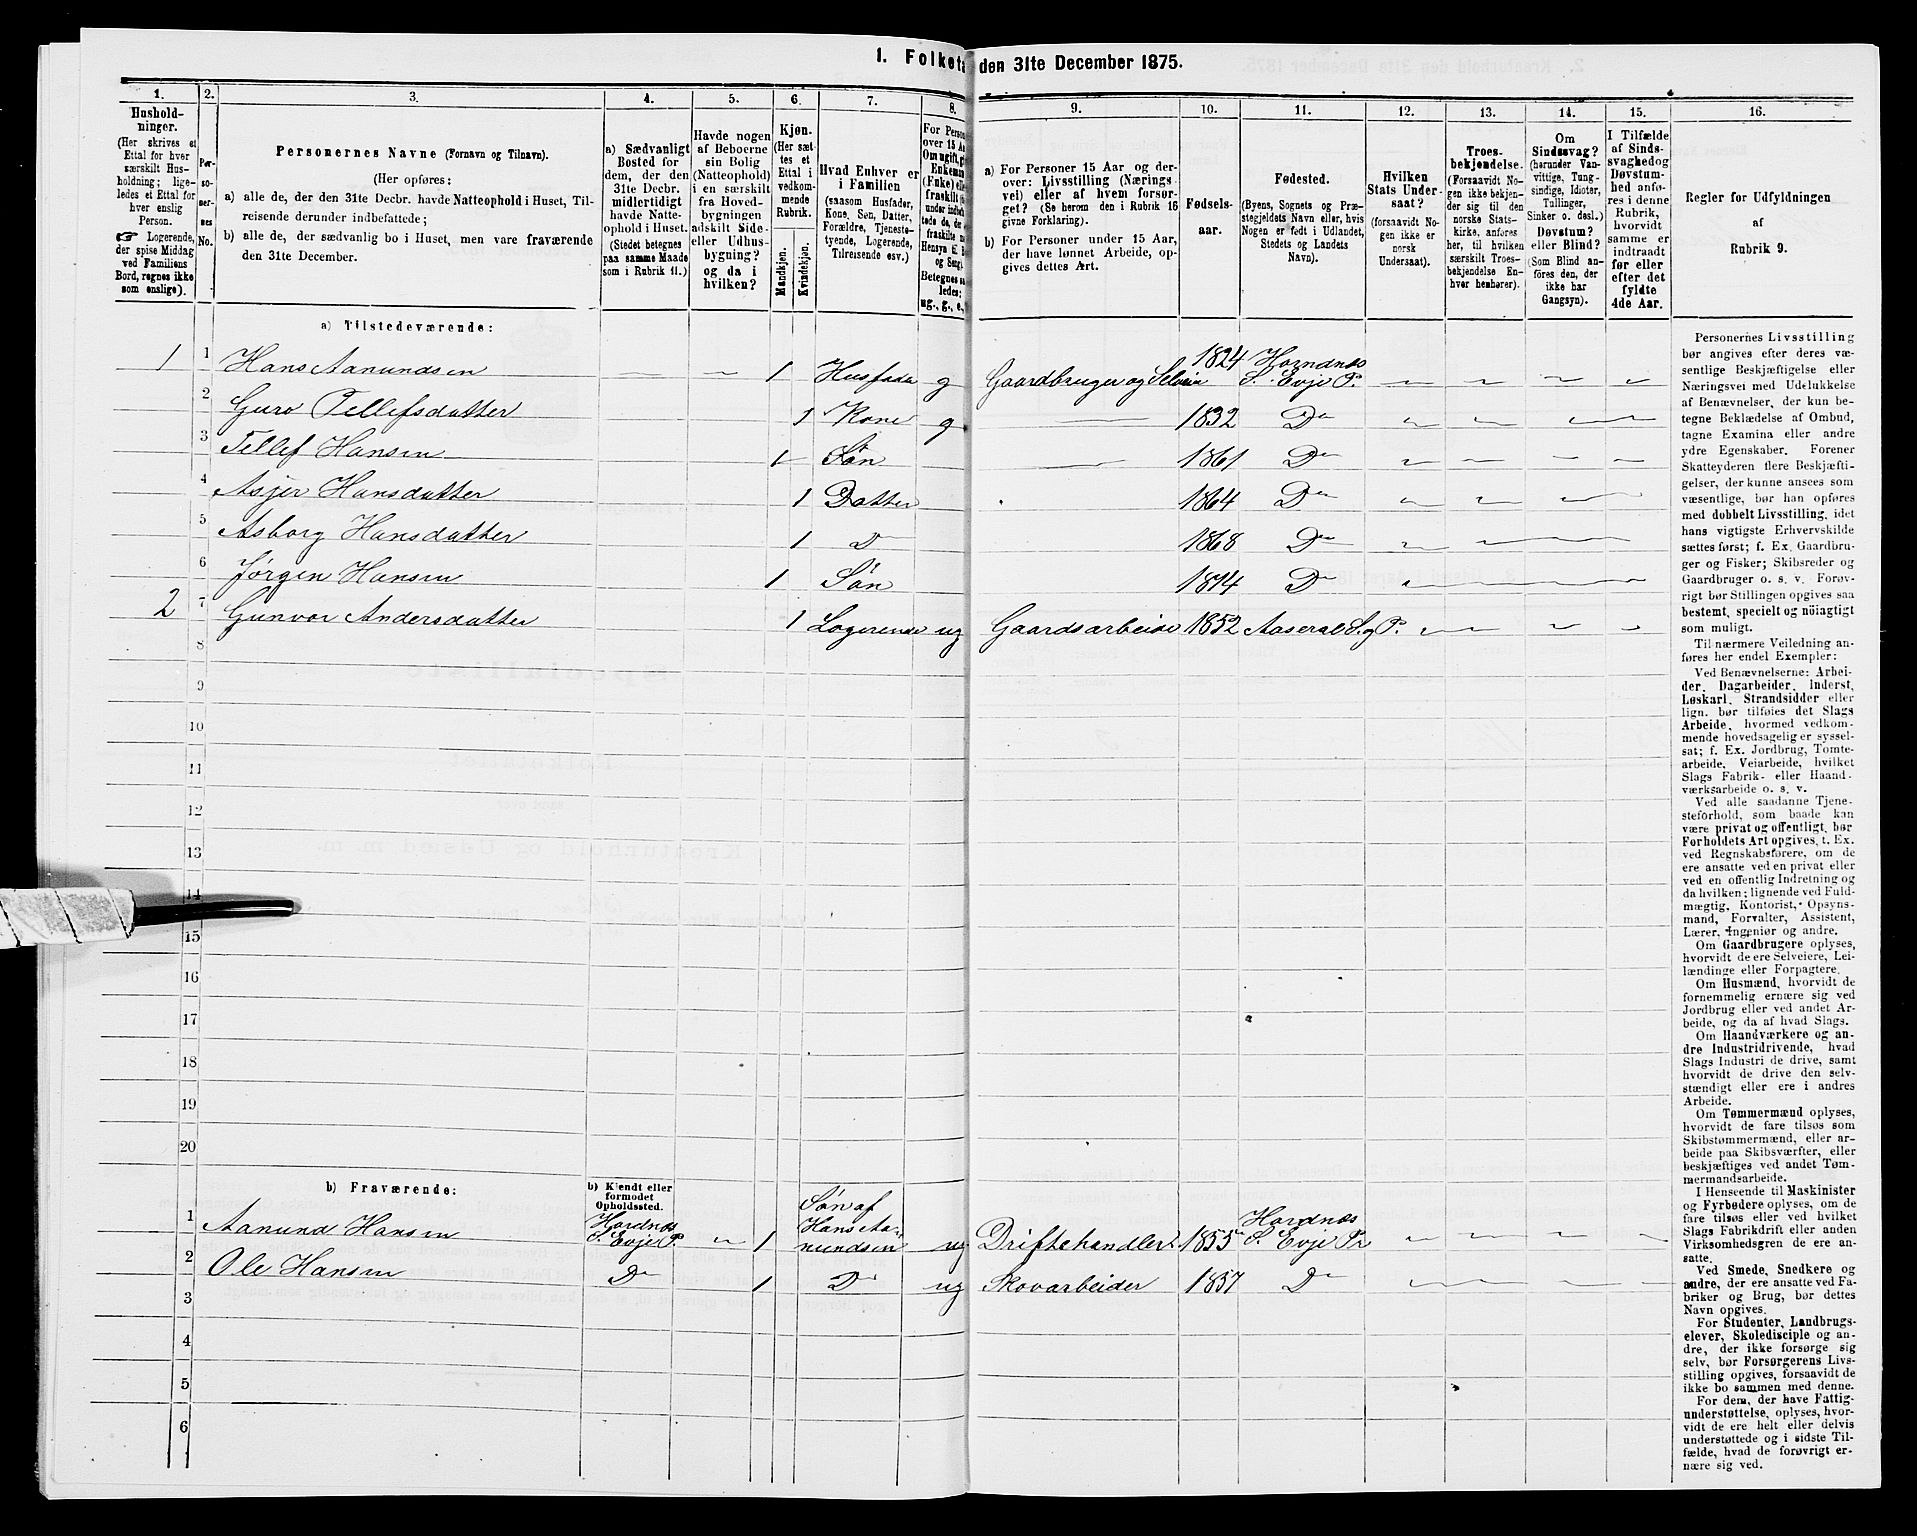 1. Folketa den 31te December 1875.
1. 2. 3. 4. 5. 6. 7. 8. 9. 10. 11. 12. 13. 14. 15. 16.
Hushold-
ninger.
(Her skrives et
Ettal for hver
særskilt Hus-
holdning; lige-
ledes et Ettal for
hver enslig
Person.
☞ Logerende,
der spise Middag
ved Familiens
Bord, regnes ikke
som enslige).
Per-
so-
ner-
nes
No.
Personernes Navne (Fornavn og Tilnavn).
(Her opføres:
a) alle de, der den 31te Decbr. havde Natteophold i Huset, Til-
reisende derunder indbefattede;
b) alle de, der sædvanlig bo i Huset, men vare fraværende
den 31te December.
a) Sædvanligt
Bosted for
dem, der den
31te Decbr.
midlertidigt
havde Natte-
ophold i Huset.
(Stedet betegnes
paa samme Maade
som i Rubrik 11.)
Havde nogen
af Beboerne
sin Bolig
(Natteophold)
i en særskilt
fra Hoved-
bygningen
adskilt Side-
eller Udhus-
bygning?
og da i
hvilken?
Kjøn.
(Her sæt-
tes et
Ettal i
vedkom-
mende
Rubrik.
Mandkjøn.
Kvindekjøn.
Hvad Enhver er
i Familien
(saasom Husfader,
Kone, Søn, Datter,
Forældre, Tjeneste-
tyende, Logerende,
Tilreisende osv.)
For Perso
over 15 Aa
Om ugift, gi
Enkeman
(Enke) elle
fraskilt
under indbef
tede de, der
fraskilte m
Hensyn til B
og Seng.
Betegnes sa
ledes:
ug., g., e.,
a) For Personer 15 Aar og der-
over: Livsstilling (Nærings-
vei) eller af hvem forsør-
get? (Se herom den i Rubrik 16
givne Forklaring).
b) For Personer under 15 Aar,
der have lønnet Arbeide, op-
gives dettes Art.
Fødsels-
aar.
Fødested.
(Byens, Sognets og Præ-
stegjeldets Navn eller, hvis
Nogen er født i Udlandet,
Stedets og Landets
Navn).
Hvilken
Stats Under-
saat?
(forsaavidt No-
gen ikke er
norsk
Undersaat).
Troes-
bekjendelse.
(Forsaavidt Nogen
ikke bekjen-
der sig til den
norske Stats-
kirke, anføres
her, til hvilken
særskilt Troes-
bekjendelse En-
hver henhører).
Om
Sindssvag?
(herunder Van-
vittige, Tung-
sindige, Idioter,
Tullinger,
Sinker o. desl.)
Døvstum?
eller Blind?
(Som Blind an-
føres den, der
ikke har
Gangsyn).
I Tilfælde
af Sinds-
svaghed og
Døvstum-
hed anfø-
res i denne
Rubrik,
hvorvidt
samme er
indtraadt
før eller
efter det
fyldte
4de Aar.
Regler for Udfyldningen
af
Rubrik 9.
a) Tilstedeværende:
1 1 Hans Aanundsen 1 Husfada g Gaardbruger og Selveier 1824 Horndnes S. Evje P.
2 Guro Tellefsdatter 1 Kone g 1832 Do
3 Tellef Hansen 1 Søn 1861 Do
4 Asjer Hansdatter 1 Datter 1864 Do
5 Asborg Hansdatter 1 D 1868 Do
6 Jørgen Hansen 1 Søn 1874 Do
2 7 Gunvor Andersdatter 1 Logerende ug Gaardsarbeide 1852 Aaseral S. og P.
8
9
10
11
12
13
14
15
16
17
18
19
20
b) Fraværende:
b) Kjendt eller
formodet
Opholdssted.
1 Aanund Hansen Hordnes S. Evje P. 1 Søn af Hans Aanundsen ug Driftehandler 1855 Hordnes S. Evje Pr
2 Ole Hansen Do 1 Do ug Skovarbeider 1857 Do
3
4
5
6
Personernes Livsstilling
bør angives efter deres væ-
sentlige Beskjæftigelse eller
Næringsvei med Udelukkelse
af Benævnelser, der kun be-
tegne Beklædelse af Ombud,
tagne Examina eller andre
ydre Egenskaber. Forener
Skatteyderen flere Beskjæfti-
gelser, der kunne ansees som
væsentlige, bør han opføres
med dobbelt Livsstilling, idet
hans vigtigste Erhvervskilde
sættes først; f. Ex. Gaardbru-
ger og Fisker; Skibsreder og
Gaardbruger o. s. v. Forøv-
rigt bør Stillingen opgives saa
bestemt, specielt og nøiagtigt
som muligt.
Til nærmere Veiledning an-
føres her endel Exempler:
Ved Benævnelserne: Arbei-
der, Dagarbeider, Inderst,
Løskarl, Strandsidder eller
lign. bør tilføies det Slags
Arbeide, hvormed vedkom-
mende hovedsagelig er syssel-
sat; f. Ex. Jordbrug, Tomte-
arbeide, Veiarbeide, hvilket
Slags Fabrik- eller Haand-
værksarbeide o. s. v.
Ved alle saadanne Tjene-
steforhold, som baade kan
være privat og offentligt, bør
Forholdets Art opgives, t. Ex.
ved Regnskabsførere, om de
ere ansatte ved en privat eller
ved en offentlig Indretning og
da hvilken; lignende ved Fuld-
mægtig, Kontorist, Opsyns-
mand, Forvalter, Assistent,
Lærer, Ingeniør og andre.
Om Gaardbrugere oplyses,
hvorvidt de ere Selveiere, Lei-
lændinge eller Forpagtere.
Om Husmænd, hvorvidt de
fornemmelig ernære sig ved
Jordbrug eller ved andet Ar-
beide, og da af hvad Slags.
Om Haandværkere og an-
dre Industridrivende, hvad
Slags Industri de drive, samt
hvorvidt de drive den selv-
stændigt eller ere i andres
Arbeide.
Om Tømmermænd oplyses,
hvorvidt de fare tilsøs som
Skibstømmermænd, eller ar-
beide paa Skibsværfter, eller
beskjæftiges ved andet Tøm-
mermandsarbeide.
I Henseende til Maskinister
og Fyrbødere oplyses, om de
fare tilsøs eller ved hvilket
Slags Fabrikdrift eller anden
Virksomhedsgren de ere an-
satte.
Ved Smede, Snedkere og
andre, der ere ansatte ved Fa-
briker og Brug, bør dettes
Navn opgives.
For Studenter, Landbrugs-
elever, Skoledisciple og an-
dre, der ikke forsørge sig
selv, bør Forsørgerens Livs-
stilling opgives, forsaavidt de
ikke bo sammen med denne.
For dem, der have Fattig-
understøttelse, oplyses, hvor-
vidt de ere helt eller delvis
understøttede og i sidste Til-
fælde, hvad de forøvrigt er-
nære sig ved.